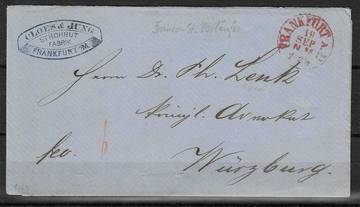 CLOES & JUNG
STROHHUT
FABRIK
FRANKFURT a/M
Franco-St. Vorläufer
FRANKFURT A.
18
SEP
N.M.
Herrn Dr. Th. Lenk
Königl. Advokat
fco. 6
Würzburg.